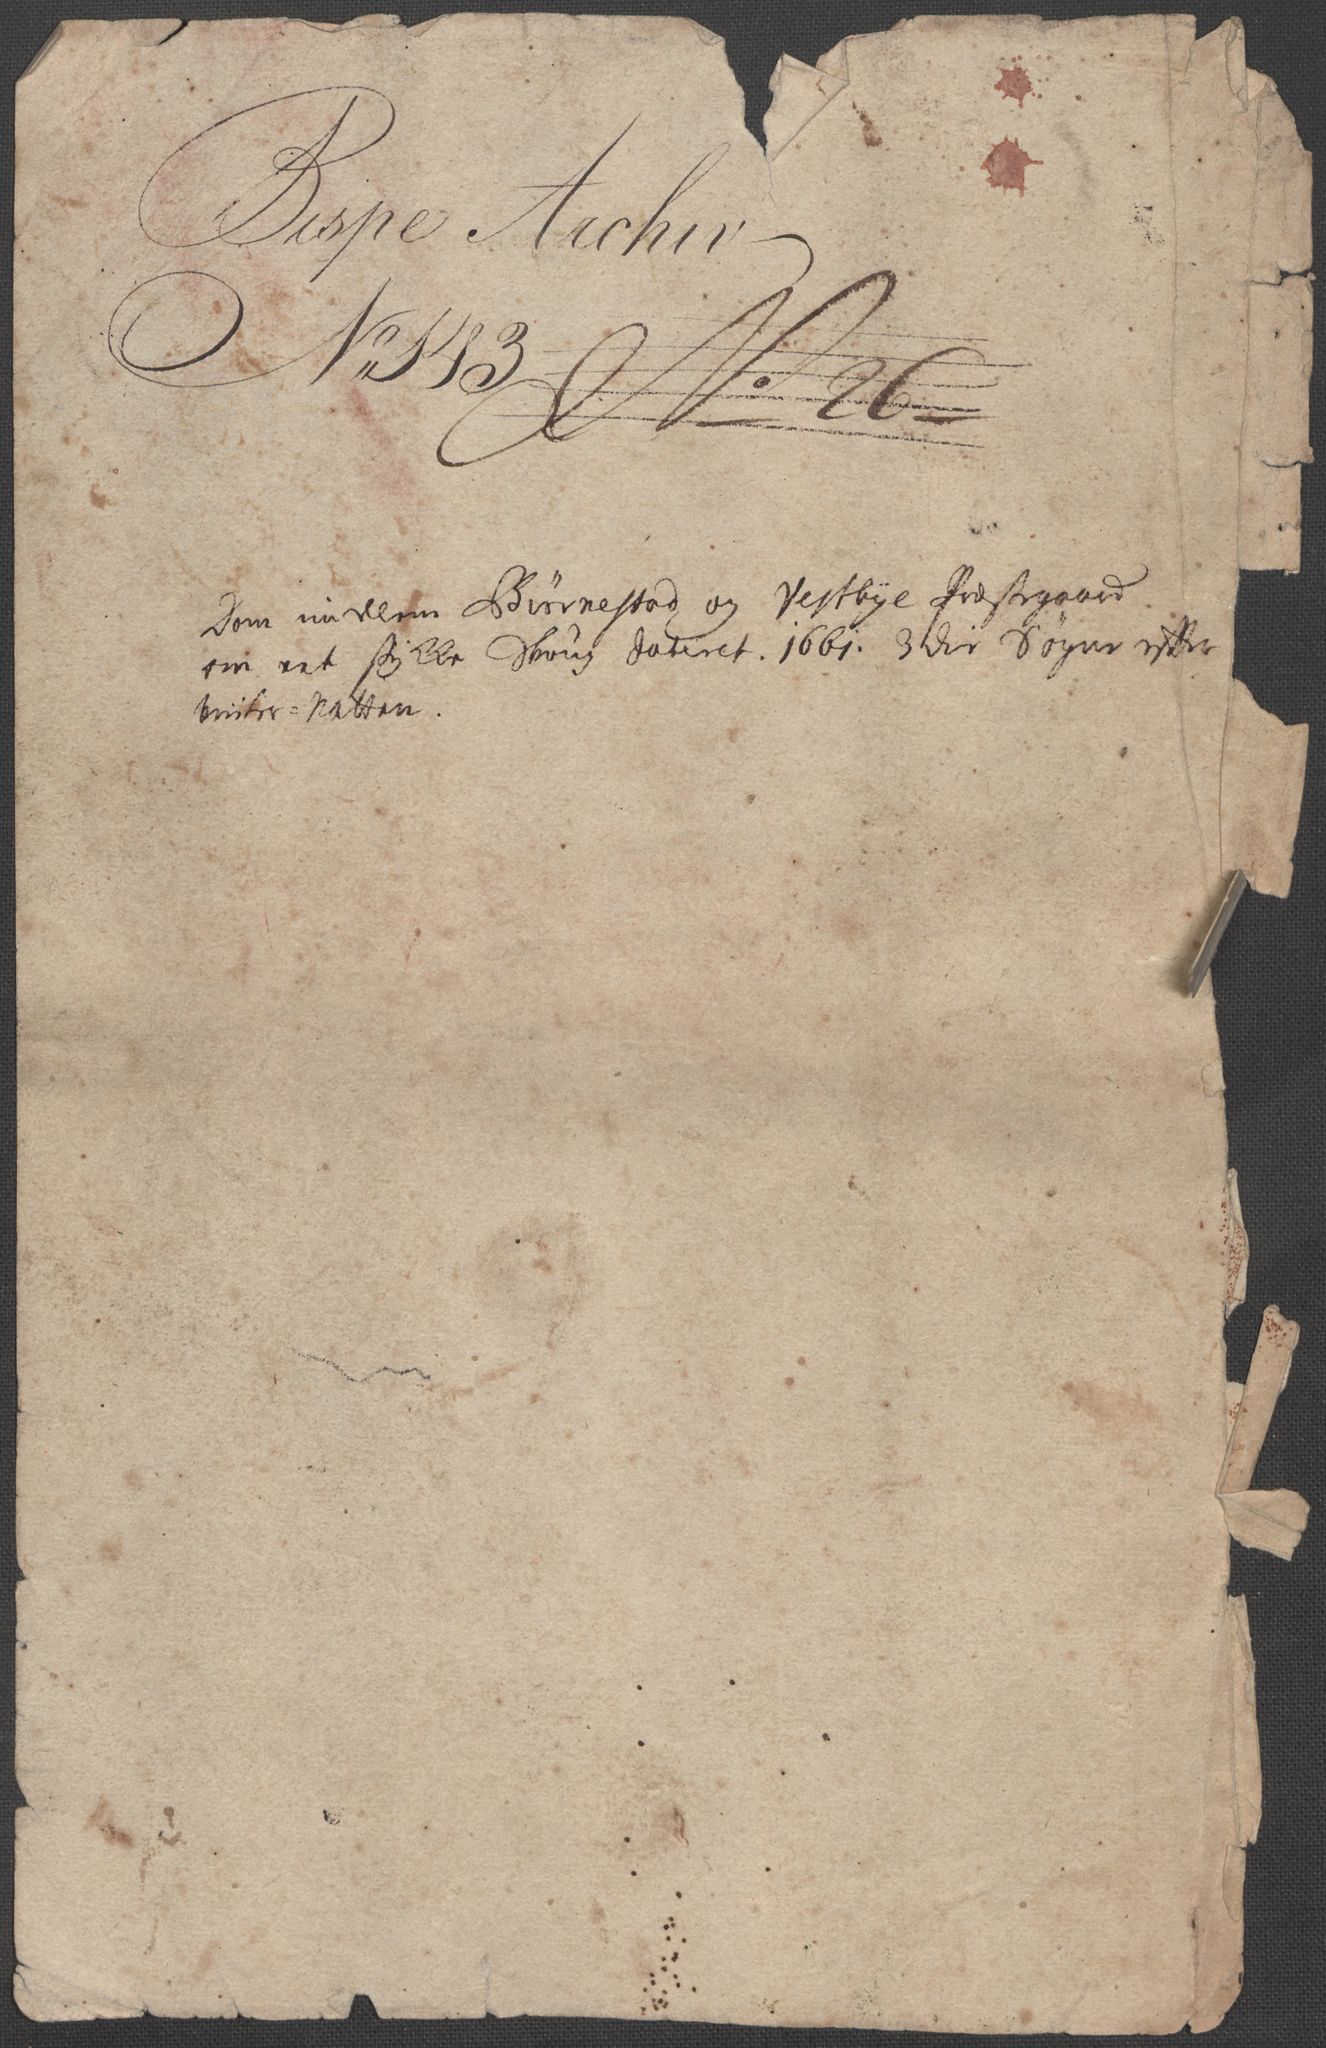 Bispe Archiv
No 143 No. 26
Dom imellem Biörnestad og Vestbye Præstegaard
om eet stÿkke Skoug dateret. 1661. 3 dir Dögnr efter
vinter=Natten.